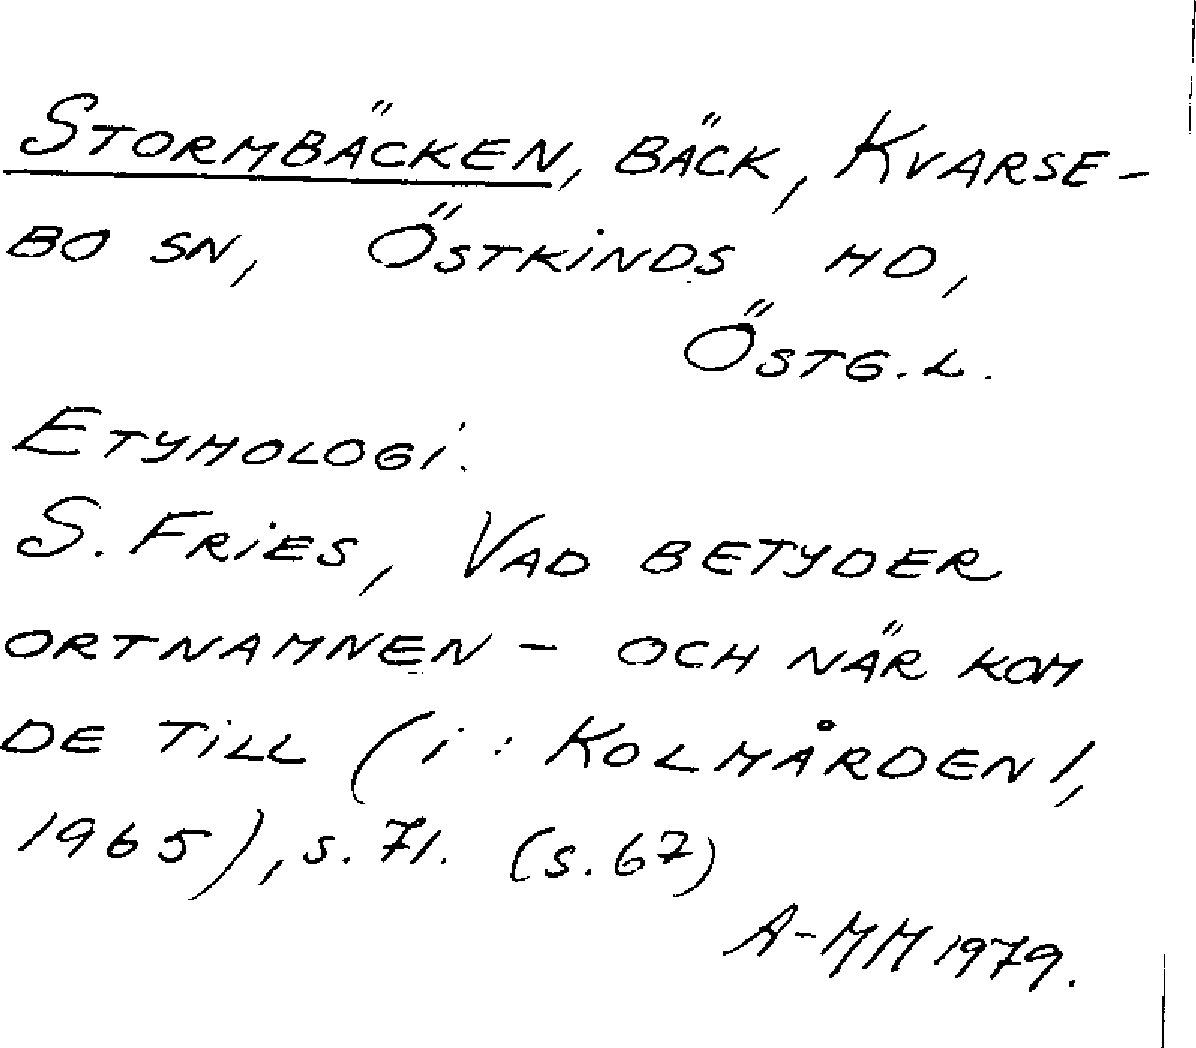 STORMBÄCKEN, BÄCK, KVARSE-
BO SN, ÖSTKINDS HD,
ÖSTG.L.
ETYMOLOGI.
S. FRIES, VAD BETYDER
ORTNAMNEN - OCH NÄR KOM
DE TILL (i: KOLMÅRDEN 1,
1965), s. 71. (s. 67)
A-MM 1979.